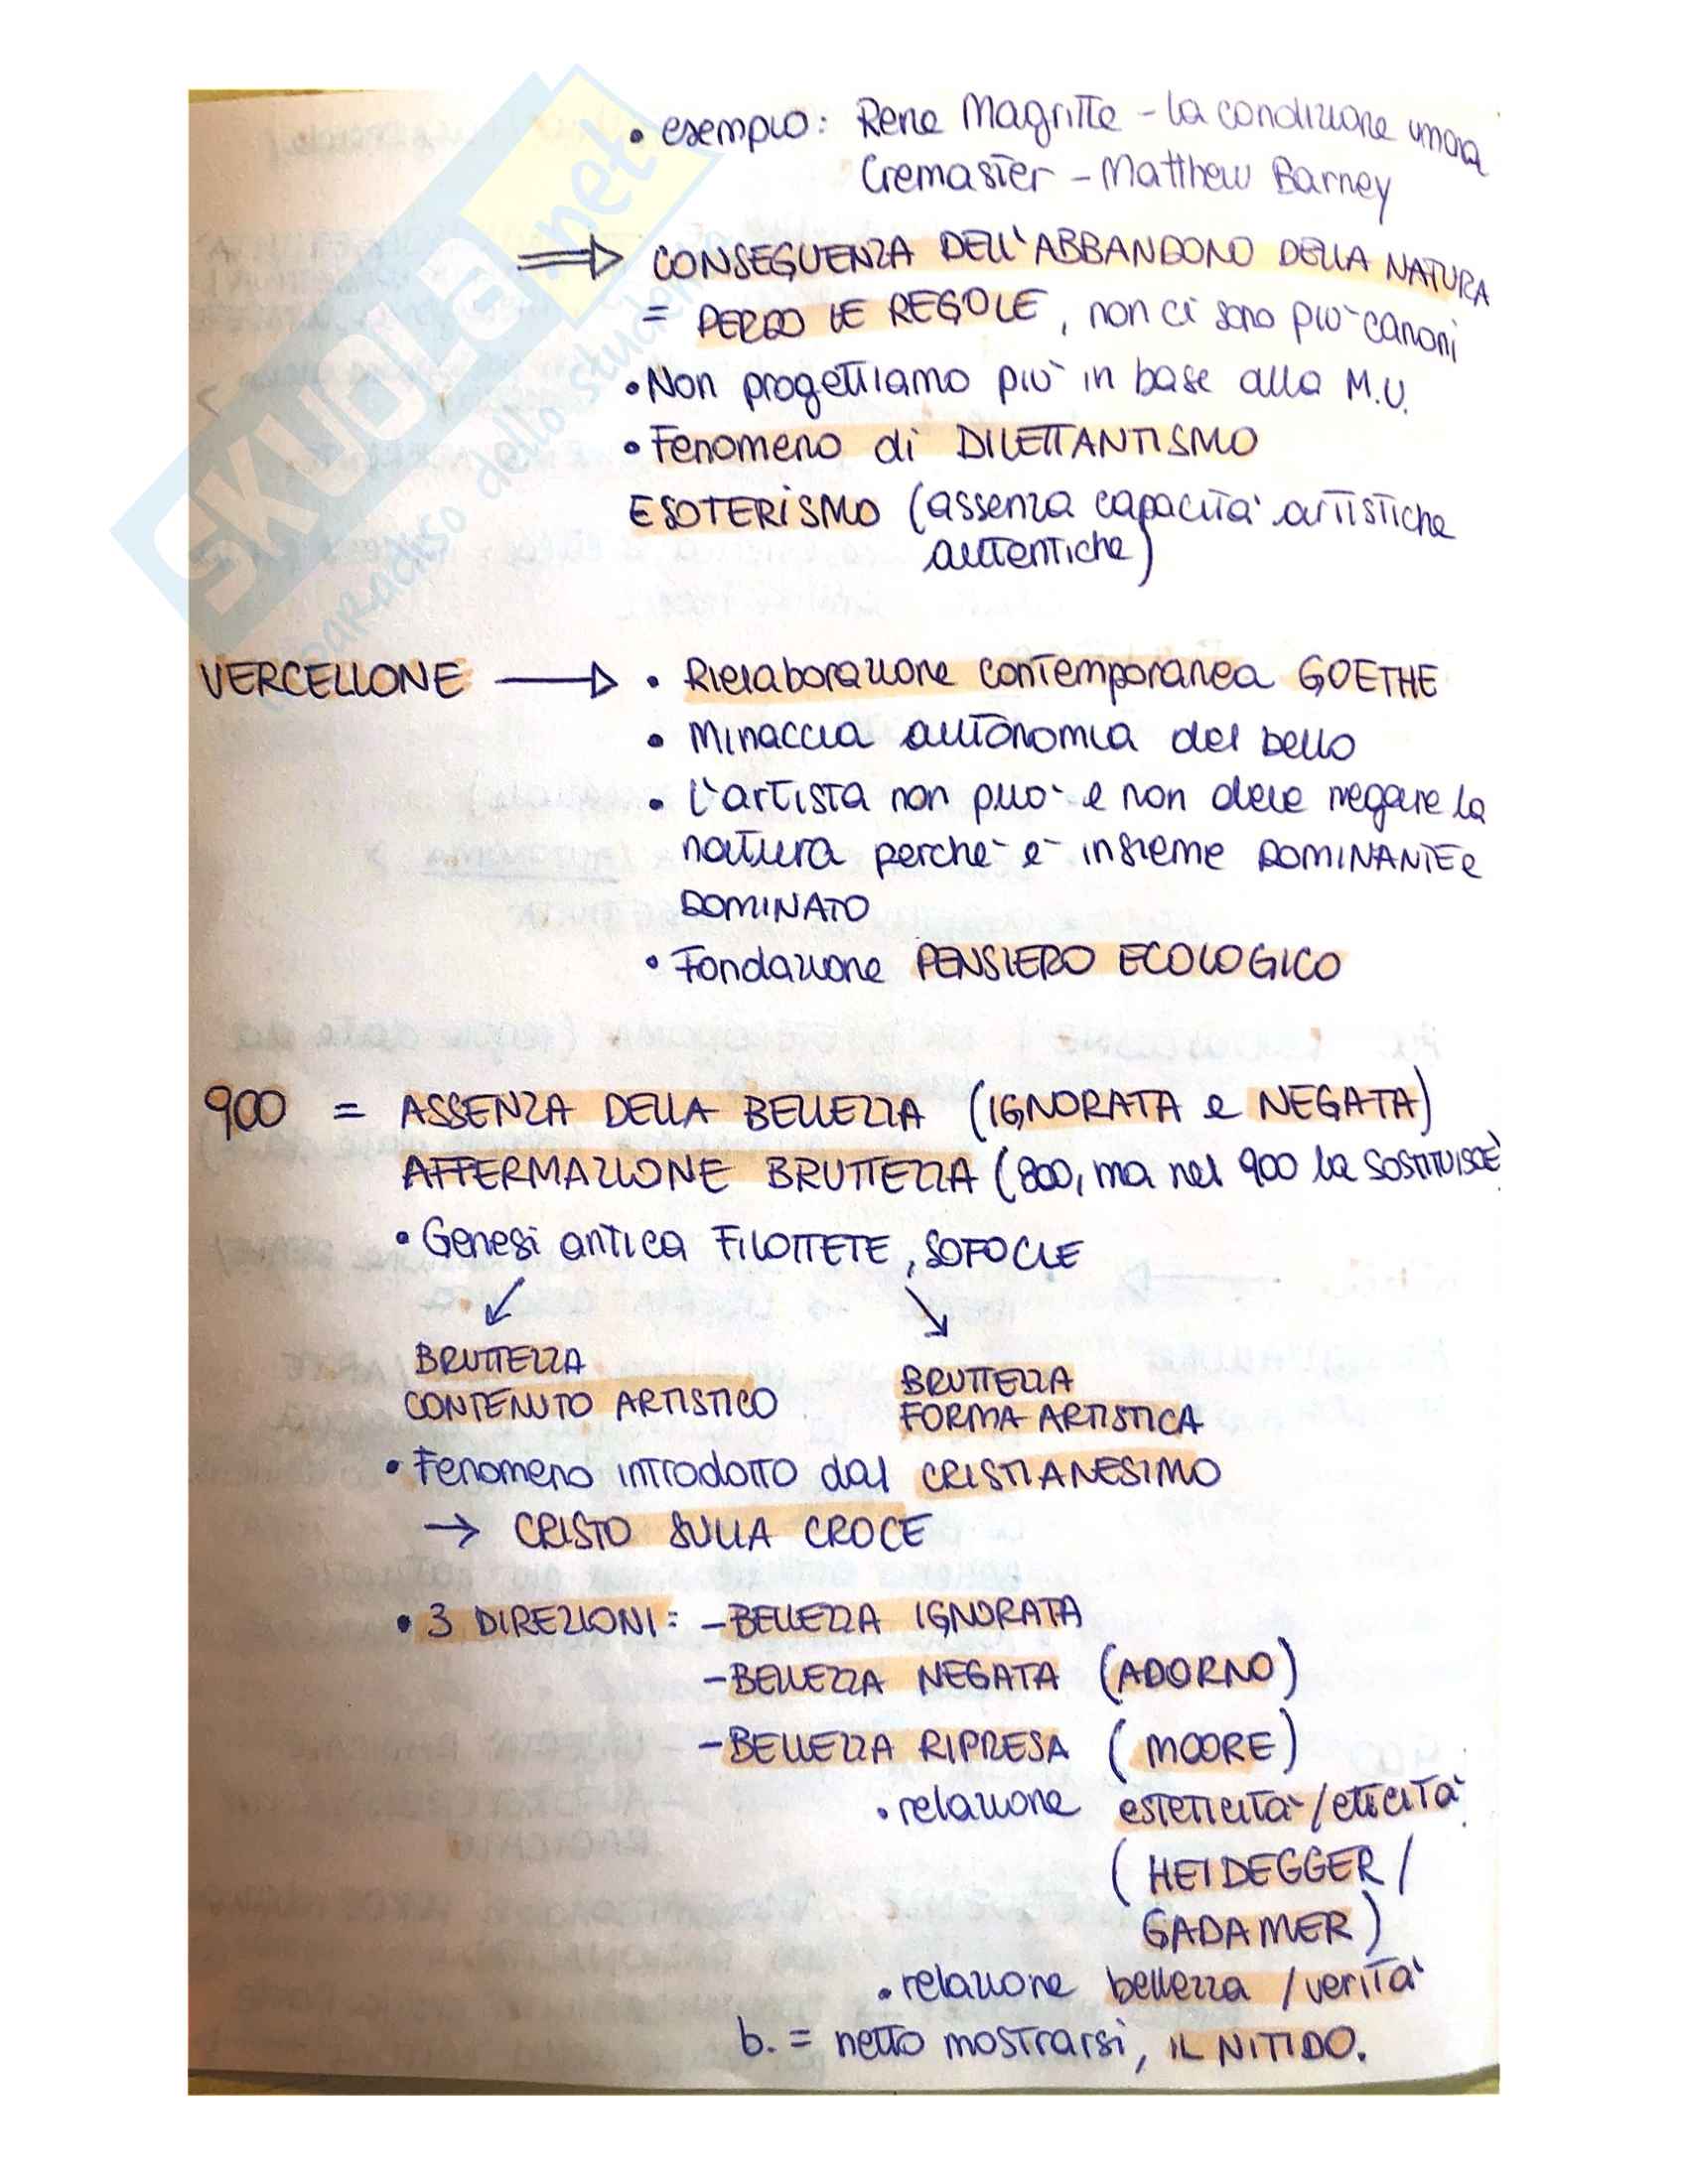 • esempio: Rene Magritte - la condizione umana
Cremaster - Matthew Barney
⇒ CONSEGUENZA DELL'ABBANDONO DELLA NATURA
= PERDO LE REGOLE, non ci sono più canoni
• Non progettiamo più in base alla M.U.
• Fenomeno di DILETTANTISMO
ESOTERISMO (assenza capacità artistiche
autentiche)
VERCELLONE → • Rielaborazione contemporanea GOETHE
• Minaccia autonomia del bello
• L'artista non può e non deve negare la
natura perché è insieme DOMINANTE e
DOMINATO
• Fondazione PENSIERO ECOLOGICO
900 = ASSENZA DELLA BELLEZZA (IGNORATA e NEGATA)
AFFERMAZIONE BRUTTEZZA (800, ma nel 900 la SOSTITUISCE)
• Genesi antica FILOTTETE, SOFOCLE
↙ ↘
BRUTTEZZA
CONTENUTO ARTISTICO
BRUTTEZZA
FORMA ARTISTICA
• Fenomeno introdotto dal CRISTIANESIMO
→ CRISTO SULLA CROCE
• 3 DIREZIONI: - BELLEZZA IGNORATA
- BELLEZZA NEGATA (ADORNO)
- BELLEZZA RIPRESA (MOORE)
• relazione esteticità/eticità
(HEIDEGGER/
GADAMER)
• relazione bellezza/verità
b. = netto mostrarsi, IL NITIDO.
SKUOLA.net
il paradiso dello studente